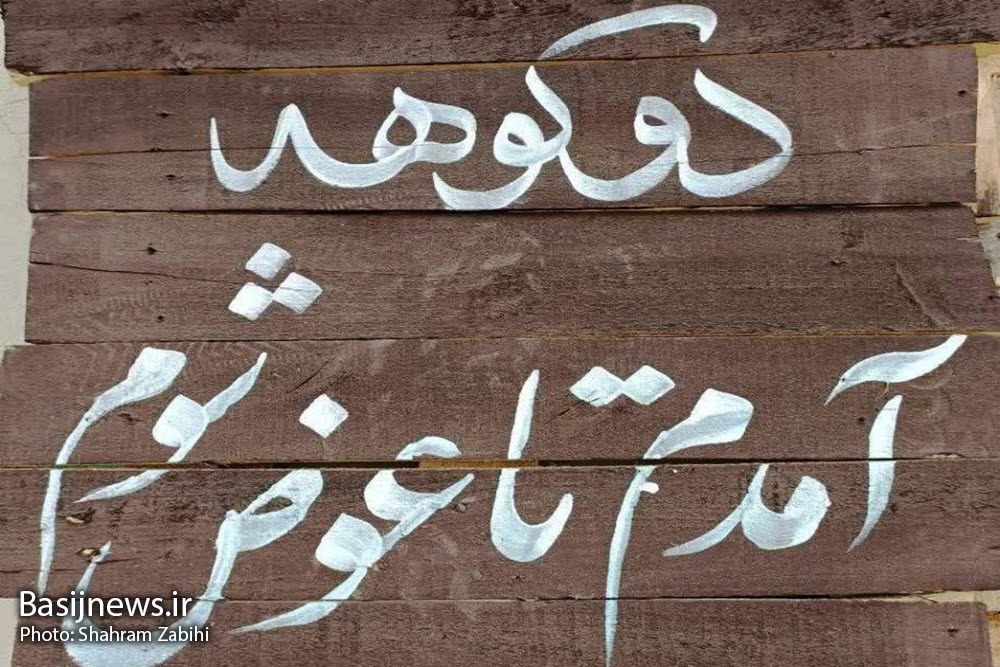 دوکوهه
آمدم تا عوض شوم
Basijnews.ir
Photo: Shahram Zabihi